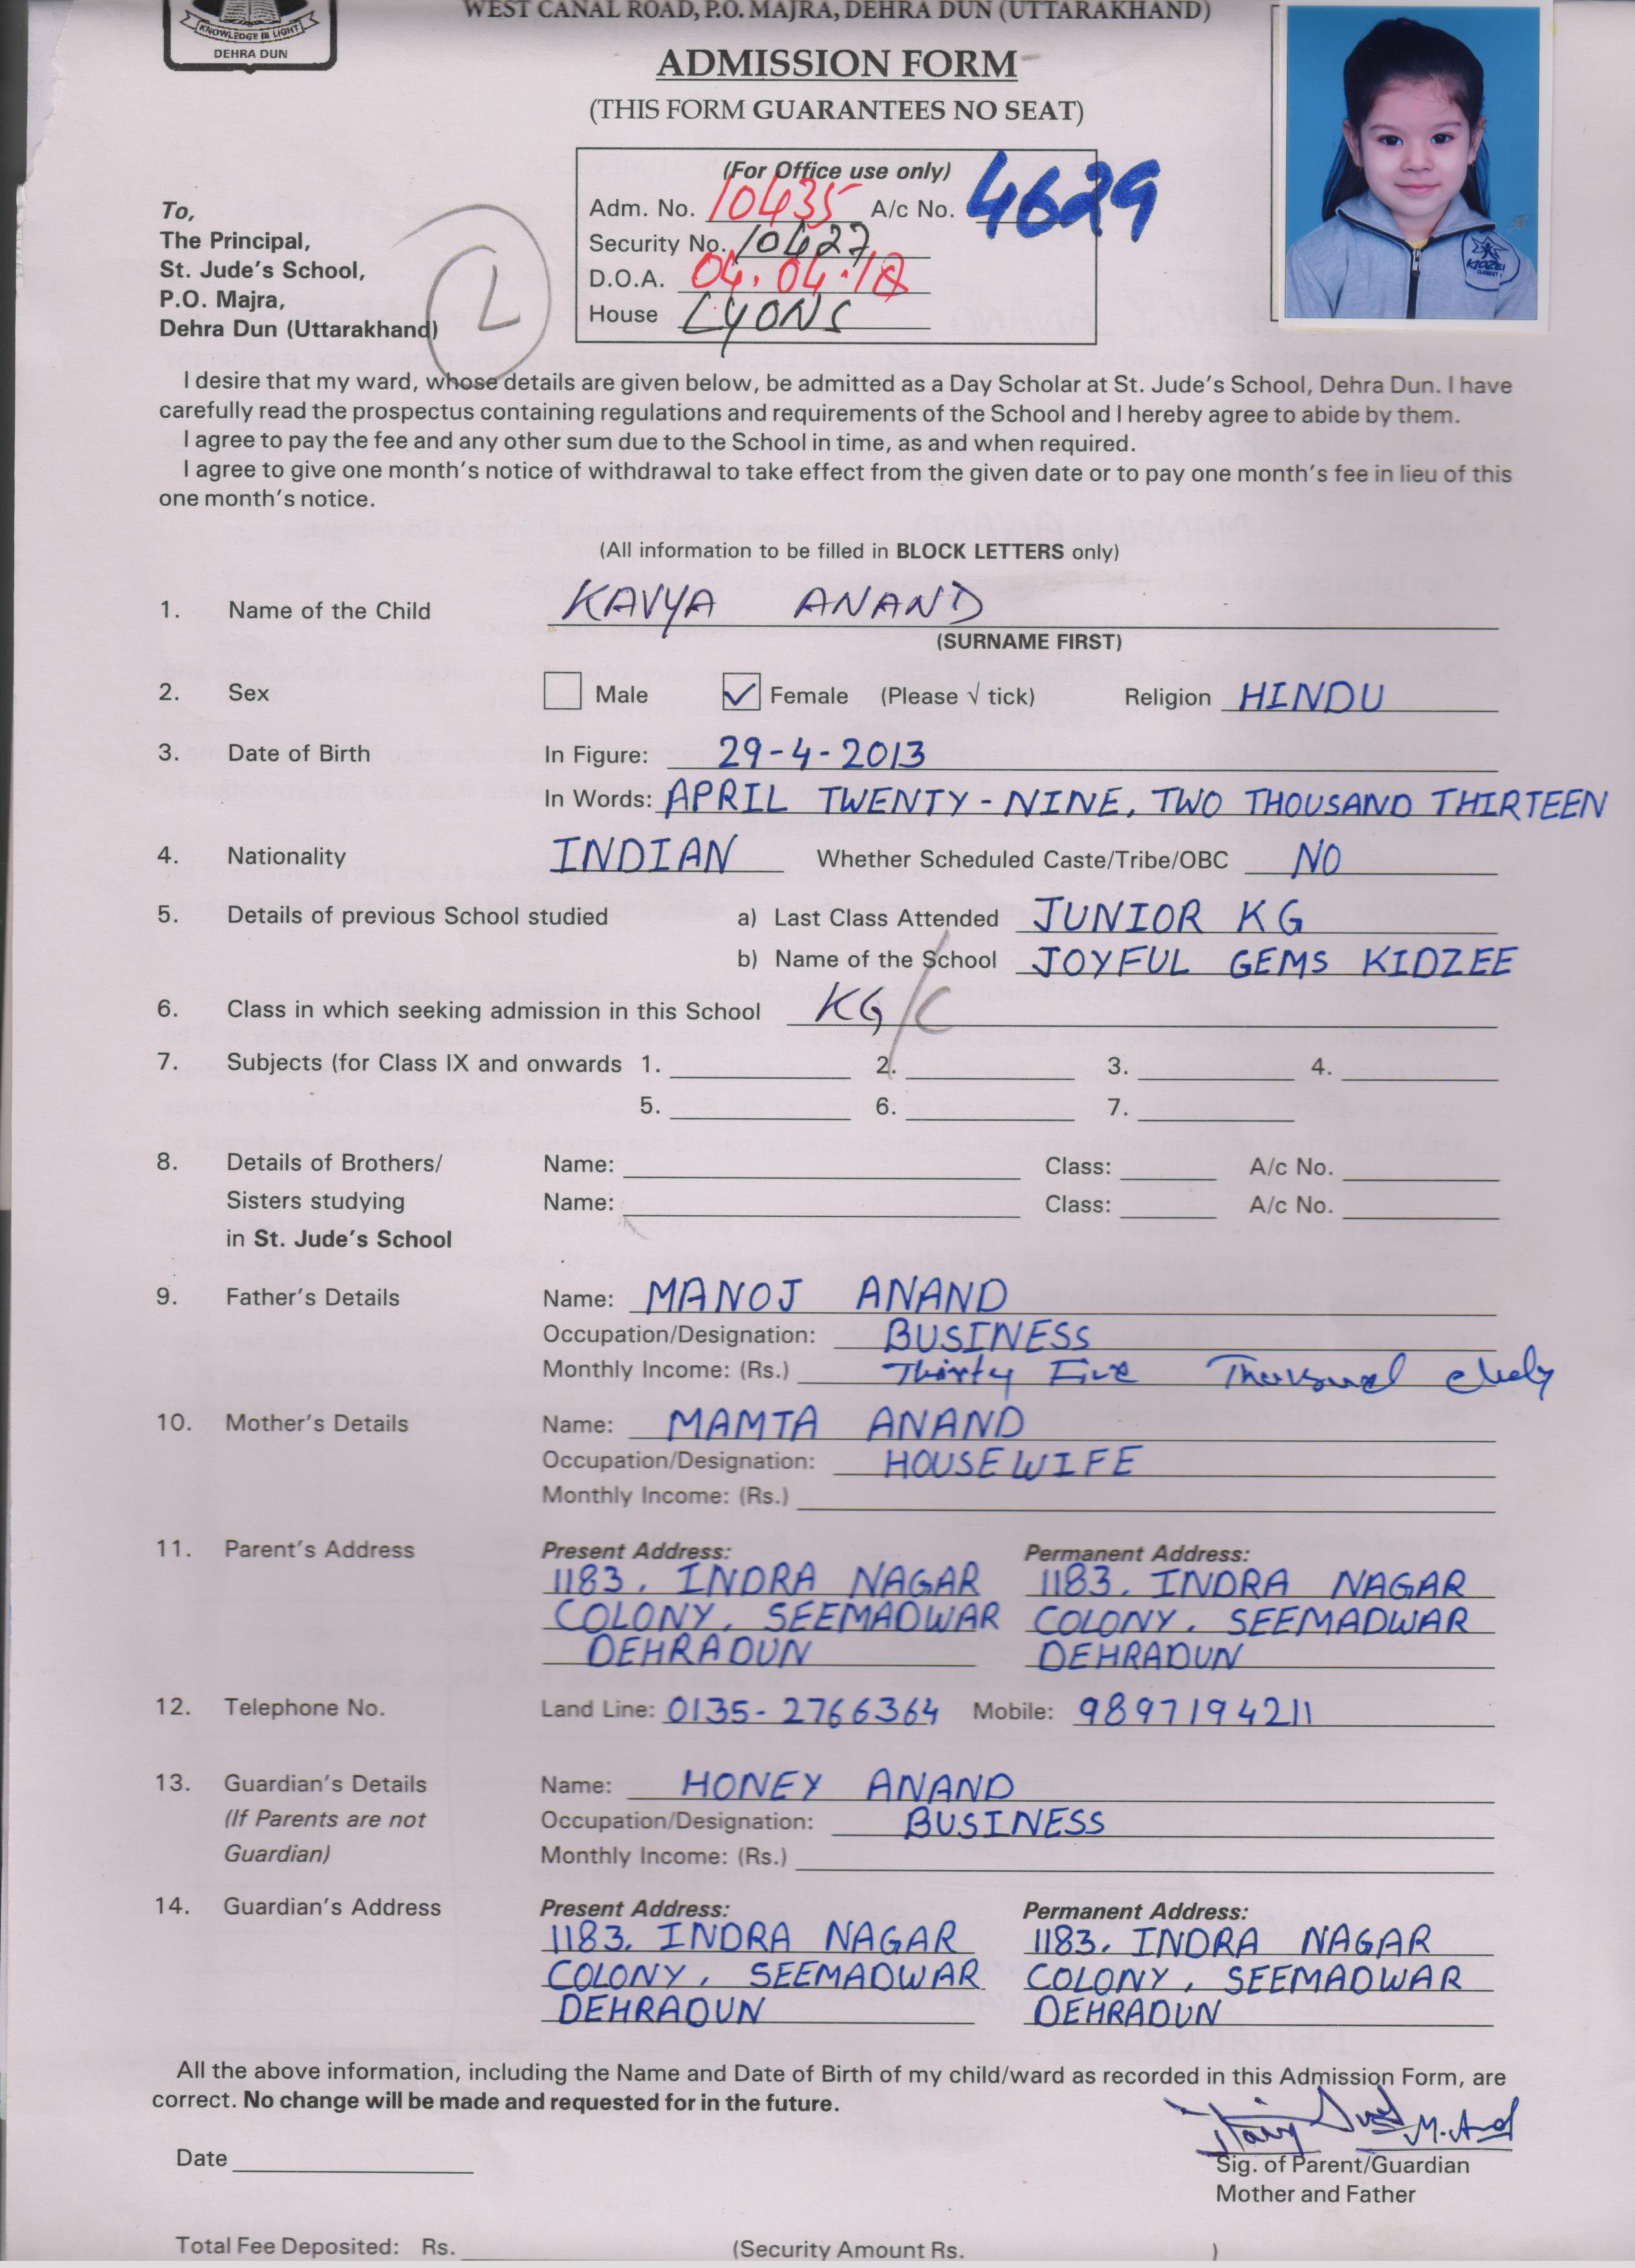 WEST CANAL ROAD, P.O. MAJRA, DEHRA DUN (UTTARAKHAND)
KNOWLEDGE IS LIGHT
DEHRA DUN
ADMISSION FORM
(THIS FORM GUARANTEES NO SEAT)
(For Office use only)
Adm. No. 10435 A/c No. 4629
Security No. 10427
D.O.A. 04.04.18
House LYONS
KIDZEE
2
To,
The Principal,
St. Jude's School,
P.O. Majra,
Dehra Dun (Uttarakhand)
I desire that my ward, whose details are given below, be admitted as a Day Scholar at St. Jude's School, Dehra Dun. I have
carefully read the prospectus containing regulations and requirements of the School and I hereby agree to abide by them.
I agree to pay the fee and any other sum due to the School in time, as and when required.
I agree to give one month's notice of withdrawal to take effect from the given date or to pay one month's fee in lieu of this
one month's notice.
(All information to be filled in BLOCK LETTERS only)
1. Name of the Child KAVYA ANAND
(SURNAME FIRST)
2. Sex Male ✓ Female (Please √ tick) Religion HINDU
3. Date of Birth In Figure: 29-4-2013
In Words: APRIL TWENTY-NINE, TWO THOUSAND THIRTEEN
4. Nationality INDIAN Whether Scheduled Caste/Tribe/OBC NO
5. Details of previous School studied a) Last Class Attended JUNIOR KG
b) Name of the School JOYFUL GEMS KIDZEE
6. Class in which seeking admission in this School KG/C
7. Subjects (for Class IX and onwards 1. 2. 3. 4.
5. 6. 7.
8. Details of Brothers/ Name: Class: A/c No.
Sisters studying Name: Class: A/c No.
in St. Jude's School
9. Father's Details Name: MANOJ ANAND
Occupation/Designation: BUSINESS
Monthly Income: (Rs.) Thirty Five Thousand
10. Mother's Details Name: MAMTA ANAND
Occupation/Designation: HOUSEWIFE
Monthly Income: (Rs.)
11. Parent's Address Present Address: Permanent Address:
1183, INDRA NAGAR 1183, INDRA NAGAR
COLONY, SEEMADWAR COLONY, SEEMADWAR
DEHRADUN DEHRADUN
12. Telephone No. Land Line: 0135-2766364 Mobile: 9897194211
13. Guardian's Details Name: HONEY ANAND
(If Parents are not Occupation/Designation: BUSINESS
Guardian) Monthly Income: (Rs.)
14. Guardian's Address Present Address: Permanent Address:
1183, INDRA NAGAR 1183, INDRA NAGAR
COLONY, SEEMADWAR COLONY, SEEMADWAR
DEHRADUN DEHRADUN
All the above information, including the Name and Date of Birth of my child/ward as recorded in this Admission Form, are
correct. No change will be made and requested for in the future.
Date
Sig. of Parent/Guardian
Mother and Father
Total Fee Deposited: Rs. (Security Amount Rs. )